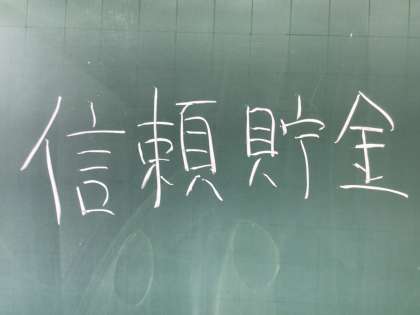 信頼貯金